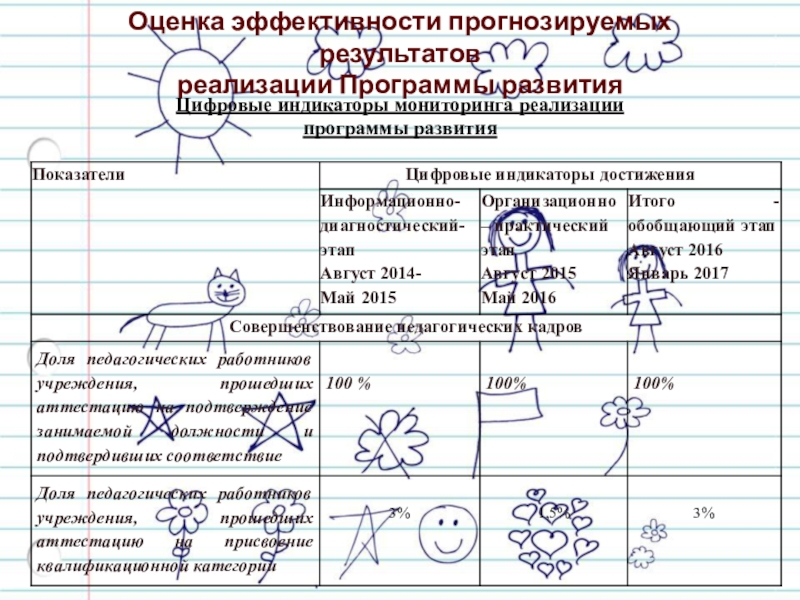 Оценка эффективности прогнозируемых
результатов
реализации Программы развития
Цифровые индикаторы мониторинга реализации
программы развития
Показатели
Цифровые индикаторы достижения
Информационно-
диагностический-
этап
Август 2014-
Май 2015
Организационно
– практический
этап
Август 2015
Май 2016
Итого -
обобщающий этап
Август 2016
Январь 2017
Совершенствование педагогических кадров
Доля педагогических работников
учреждения, прошедших
аттестацию на подтверждение
занимаемой должности и
подтвердивших соответствие
100 %
100%
100%
Доля педагогических работников
учреждения, прошедших
аттестацию на присвоение
квалификационной категории
3%
3%